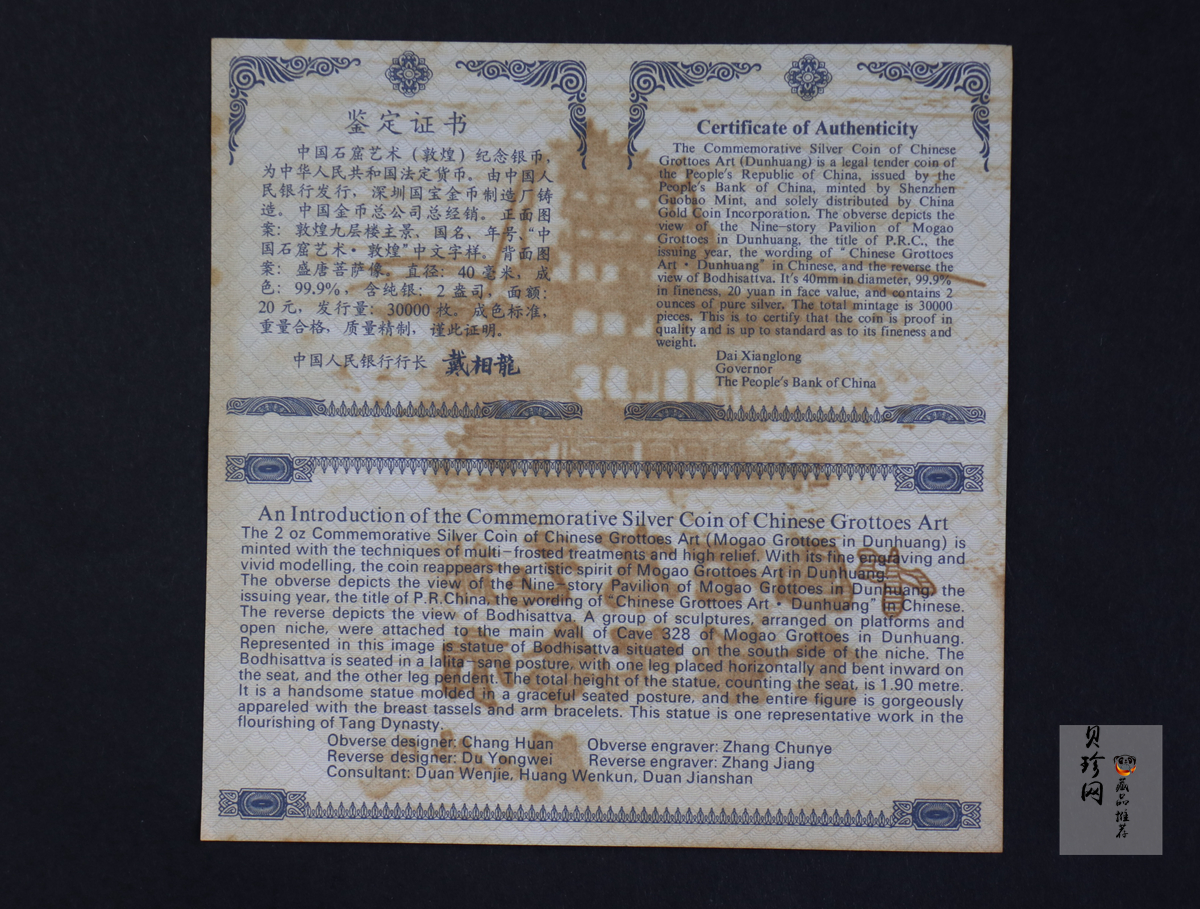 鉴定证书
中国石窟艺术（敦煌）纪念银币，
为中华人民共和国法定货币。由中国人
民银行发行，深圳国宝金币制造厂铸
造。中国金币总公司总经销。正面图
案：敦煌九层楼主景、国名、年号、“中
国石窟艺术·敦煌”中文字样。背面图
案：盛唐菩萨像。直径：40毫米，成
色：99.9%，含纯银：2盎司，面额：
20元，发行量：30000枚。成色标准，
重量合格，质量精制，谨此证明。
中国人民银行行长 戴相龍
Certificate of Authenticity
The Commemorative Silver Coin of Chinese
Grottoes Art (Dunhuang) is a legal tender coin of
the People's Republic of China, issued by the
People's Bank of China, minted by Shenzhen
Guobao Mint, and solely distributed by China
Gold Coin Incorporation. The obverse depicts the
view of the Nine-story Pavilion of Mogao
Grottoes in Dunhuang, the title of P.R.C., the
issuing year, the wording of “Chinese Grottoes
Art · Dunhuang” in Chinese, and the reverse the
view of Bodhisattva. It's 40mm in diameter, 99.9%
in fineness, 20 yuan in face value, and contains 2
ounces of pure silver. The total mintage is 30000
pieces. This is to certify that the coin is proof in
quality and is up to standard as to its fineness and
weight.
Dai Xianglong
Governor
The People's Bank of China
An Introduction of the Commemorative Silver Coin of Chinese Grottoes Art
The 2 oz Commemorative Silver Coin of Chinese Grottoes Art (Mogao Grottoes in Dunhuang) is
minted with the techniques of multi-frosted treatments and high relief. With its fine engraving and
vivid modelling, the coin reappears the artistic spirit of Mogao Grottoes Art in Dunhuang.
The obverse depicts the view of the Nine-story Pavilion of Mogao Grottoes in Dunhuang, the
issuing year, the title of P.R.China, the wording of “Chinese Grottoes Art · Dunhuang” in Chinese.
The reverse depicts the view of Bodhisattva. A group of sculptures, arranged on platforms and
open niche, were attached to the main wall of Cave 328 of Mogao Grottoes in Dunhuang.
Represented in this image is statue of Bodhisattva situated on the south side of the niche. The
Bodhisattva is seated in a lalita-sane posture, with one leg placed horizontally and bent inward on
the seat, and the other leg pendent. The total height of the statue, counting the seat, is 1.90 metre.
It is a handsome statue molded in a graceful seated posture, and the entire figure is gorgeously
appareled with the breast tassels and arm bracelets. This statue is one representative work in the
flourishing of Tang Dynasty.
Obverse designer: Chang Huan Obverse engraver: Zhang Chunye
Reverse designer: Du Yongwei Reverse engraver: Zhang Jiang
Consultant: Duan Wenjie, Huang Wenkun, Duan Jianshan
贝珍网
藏品推荐